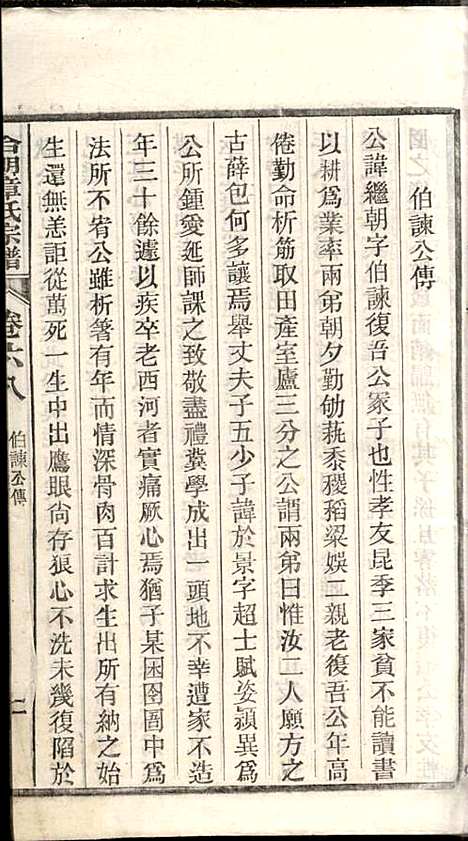 伯諫公傳
公諱繼朝字伯諫復吾公冢子也性孝友昆季三家貧不能讀書
以耕為業率兩弟朝夕勤劬蓺黍稷稻粱娛二親老復吾公年高
倦勤命析箸取田產室廬三分之公謂兩弟曰惟汝二人願方之
古薛包何多讓焉舉丈夫子五少子諱於景字超士賦姿穎異為
公所鍾愛延師課之致敬盡禮冀學成出一頭地不幸遭家不造
年三十餘遽以疾卒老西河者實痛厥心焉猶子某困囹圄中為
法所不宥公雖析箸有年而情深骨肉百計求生出所有納之始
生還無恙詎從萬死一生中出鷹眼尙存狼心不洗未幾復陷於
章氏宗譜
卷六八
伯諫公傳
二